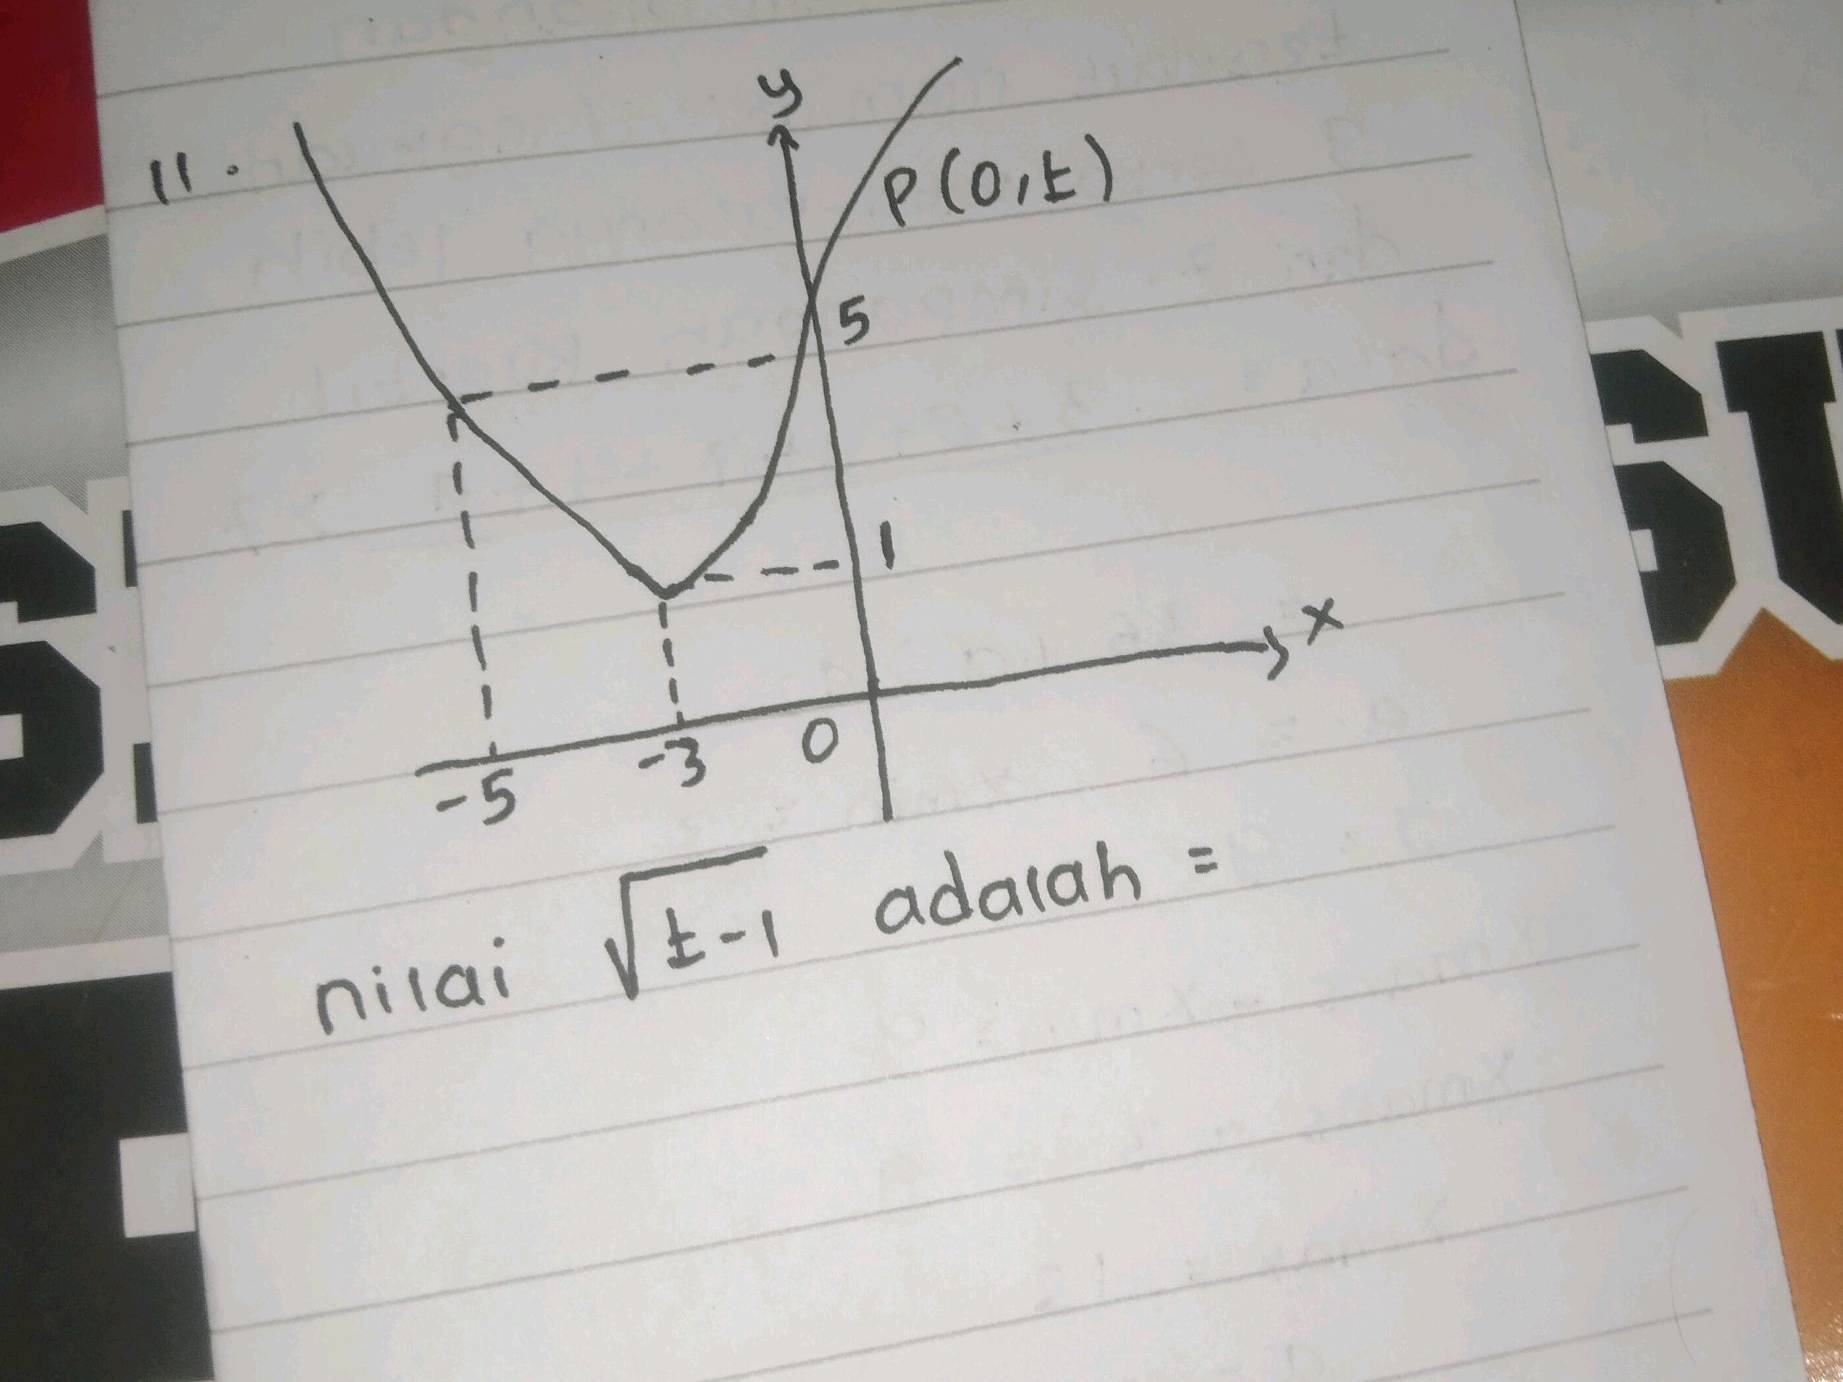 11.
y
P(0,t)
5
1
x
-5
-3
0
nilai √t-1 adalah =